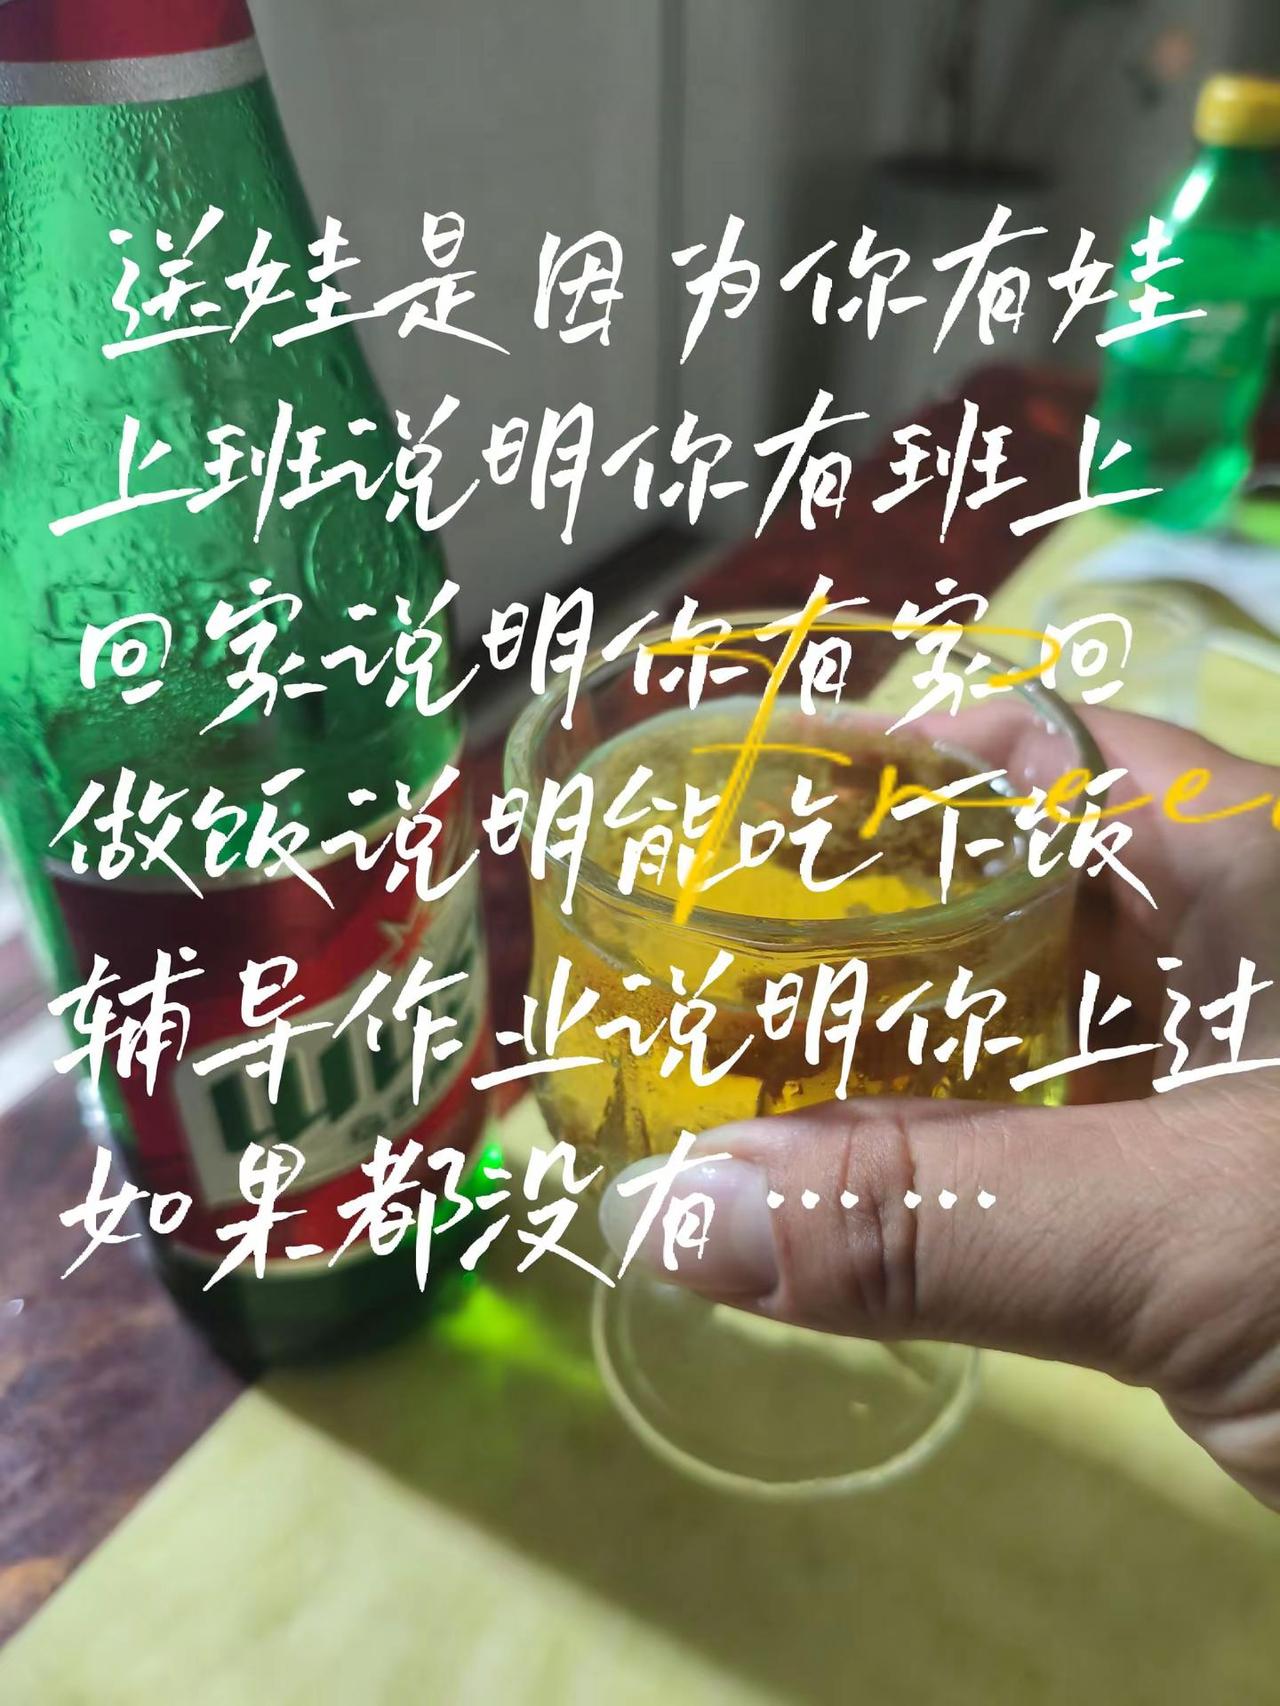 送娃是因为你有娃
上班说明你有班上
回家说明你有家回
做饭说明能吃下饭
辅导作业说明你上过
如果都没有……
Free